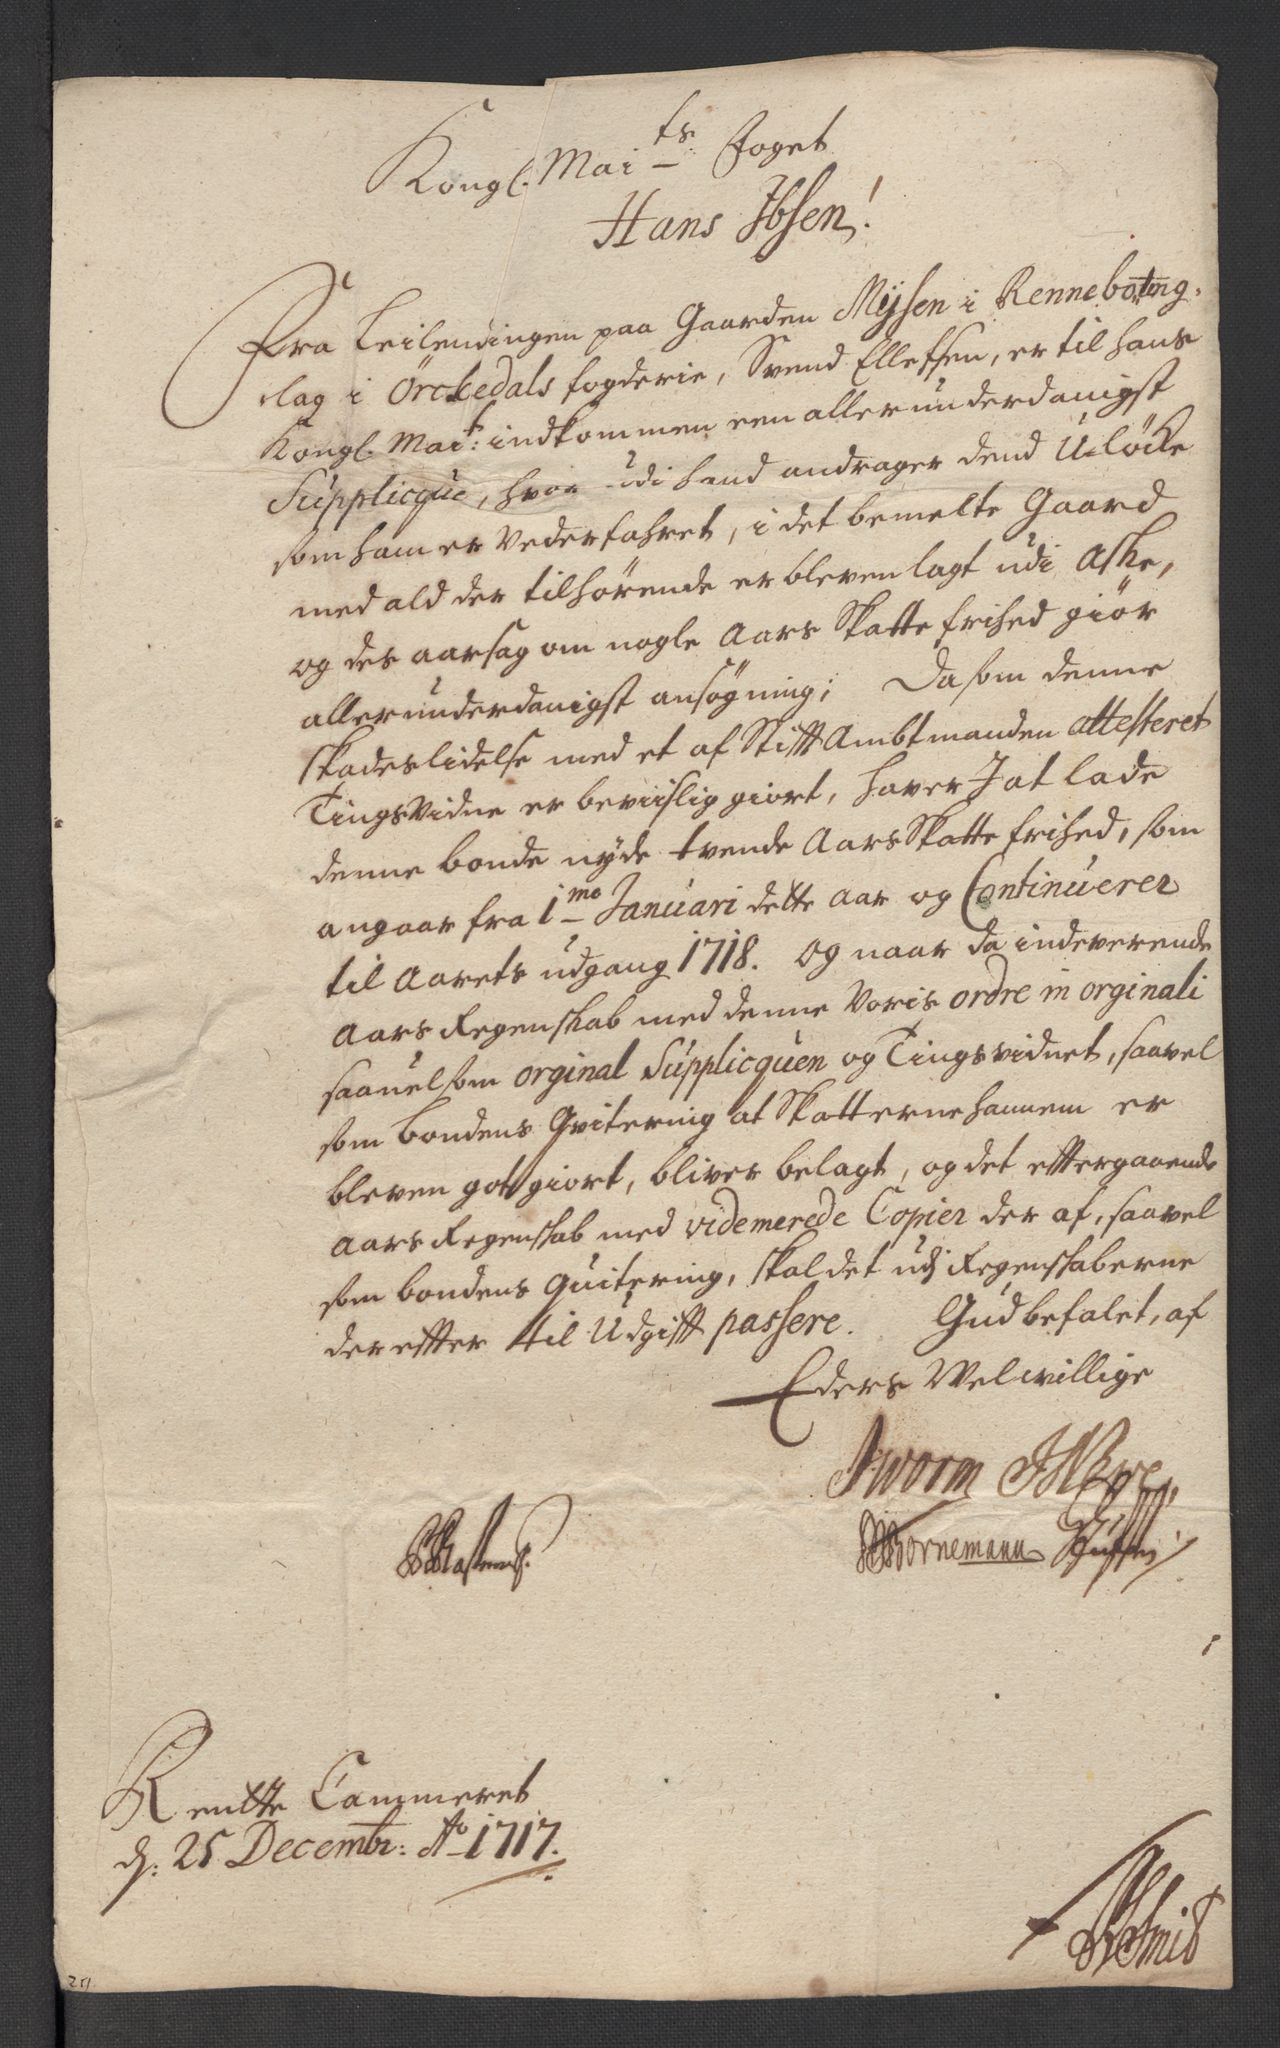 Kongl. Mai^ts Foget
Hans Ibsen!
Fra Leilendingen paa Gaarden Mÿsen i Renneboting-
lag i Örckedals fogderie, Svend Ellefsen, er til hans
Kongl. Mait: indkommen een allerunderdanigst
Supplicque, hvor udi hand andrager dend Ulöcke
som ham er Vederfahret, i det bemelte Gaard
med ald der tilhörende er bleven lagt udi Aske,
og des aarsag om nogle Aars Skatte frihed giör
allerunderdanigst ansögning; Da som denne
skades lidelse med et af Stifft Ambtmanden attesteret
TingsVidne er beviislig giort, haver I at lade
denne bonde nÿde tvende Aars Skatte frihed, som
angaar fra 1^mo Januari dette Aar og Continuerer
til Aarets udgang 1718. Og naar da indeverende
Aars Regenskab med denne Voris ordre in orginali
saauel som orginal Supplicquen og Tingsvidnet, saavel
som bondens Qvitering at Skatterne hannem er
bleven got giort, bliver belagt, og det efftergaaende
Aars Regenskab med videmerede Copier der af, saavel
som bondens Quitering, skal det udj Regenskaberne
dereffter til Udgifft passere. Gud befalet, af
Eders Welwillige
Worm
Bornemann
Rentte Cammeret
d: 25 Decembr: Ao 1717.
Smid